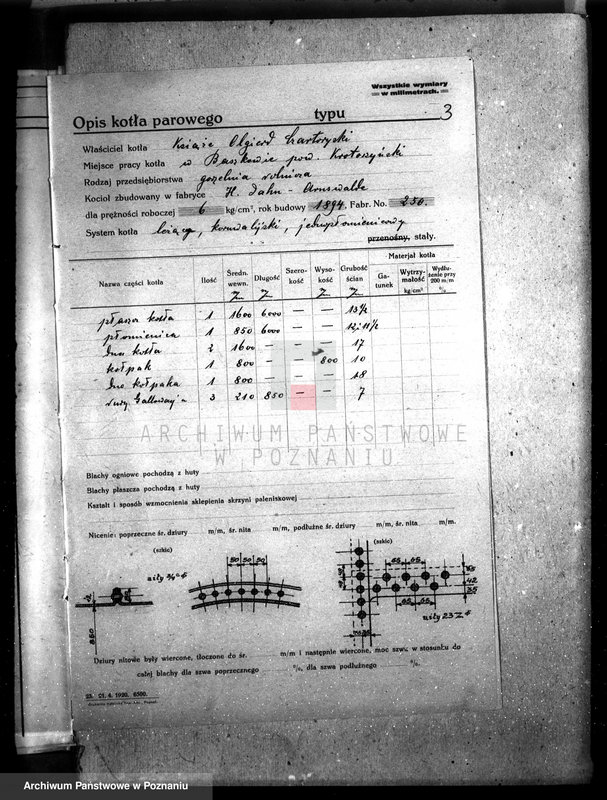 Wszystkie wymiary
w milimetrach.
Opis kotła parowego typu 3
Właściciel kotła Książe Olgierd Czartoryski
Miejsce pracy kotła w Baszkowie pow. Krotoszyński
Rodzaj przedsiębiorstwa gorzelnia rolnicza
Kocioł zbudowany w fabryce H. Jahn - Arnswalde
dla prężności roboczej 6 kg/cm², rok budowy 1894, Fabr. No. 250.
System kotła leżący, kornwalijski, jednopłomienicowy
przenośny, stały.
Nazwa części kotła Ilość Średn. wewn. Długość Szerokość Wysokość Grubość ścian Materjał kotła
Gatunek Wytrzymałość kg/cm² Wydłużenie przy 200 m/m %
płaszcz kotła 1 1600 6000 — — 13½
płomienica 1 850 6000 — — 12; 11½
dna kotła 2 1600 — — — 17
kołpak 1 800 — — 800 10
dno kołpaka 1 800 — — — 18
rury Galloway'a 3 210 850 — — 7
ARCHIWUM PAŃSTWOWE
W POZNANIU
Blachy ogniowe pochodzą z huty
Blachy płaszcza pochodzą z huty
Kształt i sposób wzmocnienia sklepienia skrzyni paleniskowej
Nicenie: poprzeczne śr. dziury m/m, śr. nita m/m, podłużne śr. dziury m/m, śr. nita m/m.
(szkic) (szkic)
nity ¾" ϕ
50 50 50
65 65
35
42
35
65 65
nity 23 ϕ
850
Dziury nitowe były wiercone, tłoczone do śr. m/m i następnie wiercone, moc szwu w stosunku do
całej blachy dla szwa poprzecznego %, dla szwa podłużnego %.
23. 21. 4. 1920. 6500.
Archiwum Państwowe w Poznaniu